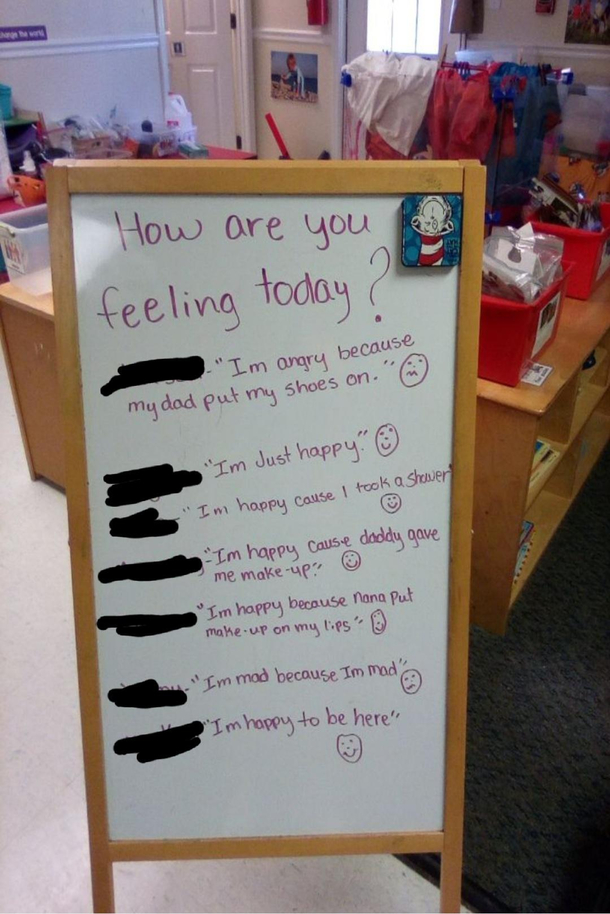 change the world
How are you
feeling today?
"Im angry because
my dad put my shoes on."
"Im Just happy."
"Im happy cause I took a shower"
-"Im happy cause daddy gave
me make-up."
"Im happy because nana put
make-up on my lips"
-"Im mad because Im mad"
"Im happy to be here"